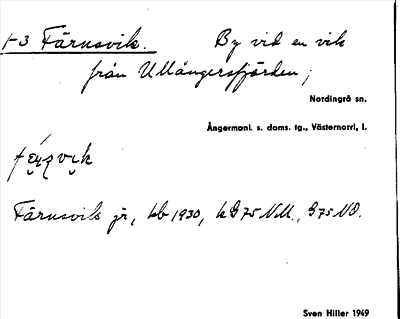 1-3 Färnsvik. By vid en vik
från Ullångersfjärden;
Nordingrå sn.
Ångermanl. s. doms. tg., Västernorrl. l.
Färnsvik jr, kb 1930, k G 75 NV., G 75 NO.
Sven Hiller 1949